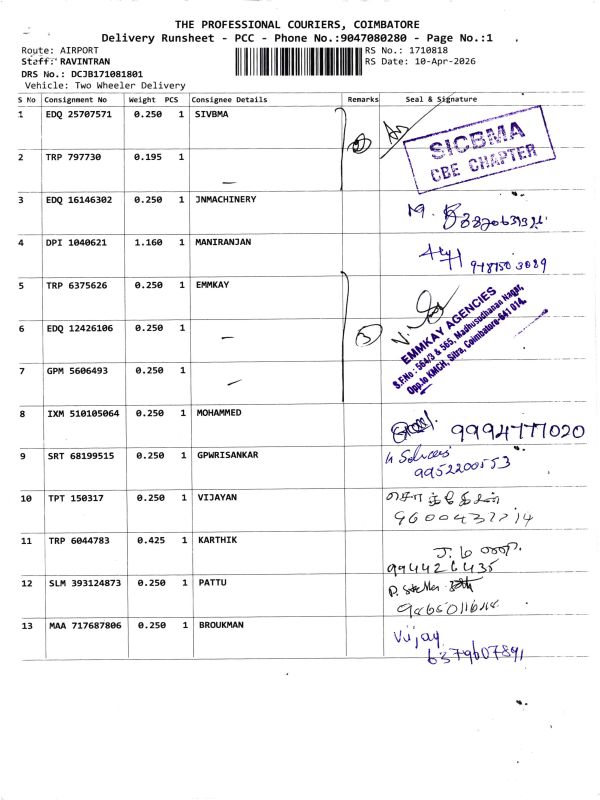 THE PROFESSIONAL COURIERS, COIMBATORE
Delivery Runsheet - PCC - Phone No.:9047080280 - Page No.:1
Route: AIRPORT RS No.: 1710818
Staff: RAVINTRAN RS Date: 10-Apr-2026
DRS No.: DCJB171081801
Vehicle: Two Wheeler Delivery
S No Consignment No Weight PCS Consignee Details Remarks Seal & Signature
1 EDQ 25707571 0.250 1 SIVBMA
SICBMA
CBE CHAPTER
2 TRP 797730 0.195 1 —
3 EDQ 16146302 0.250 1 JNMACHINERY
4 DPI 1040621 1.160 1 MANIRANJAN
5 TRP 6375626 0.250 1 EMMKAY
EMMKAY AGENCIES
S.F.No : 564/3 & 565, Madhusudhanan Nagar,
Opp.to KMCH, Sitra, Coimbatore-641 014.
6 EDQ 12426106 0.250 1 —
7 GPM 5606493 0.250 1 —
8 IXM 510105064 0.250 1 MOHAMMED 9994777020
9 SRT 68199515 0.250 1 GPWRISANKAR
9952200553
10 TPT 150317 0.250 1 VIJAYAN
11 TRP 6044783 0.425 1 KARTHIK
9944266435
12 SLM 393124873 0.250 1 PATTU
13 MAA 717687806 0.250 1 BROUKMAN Vijay
6379607891